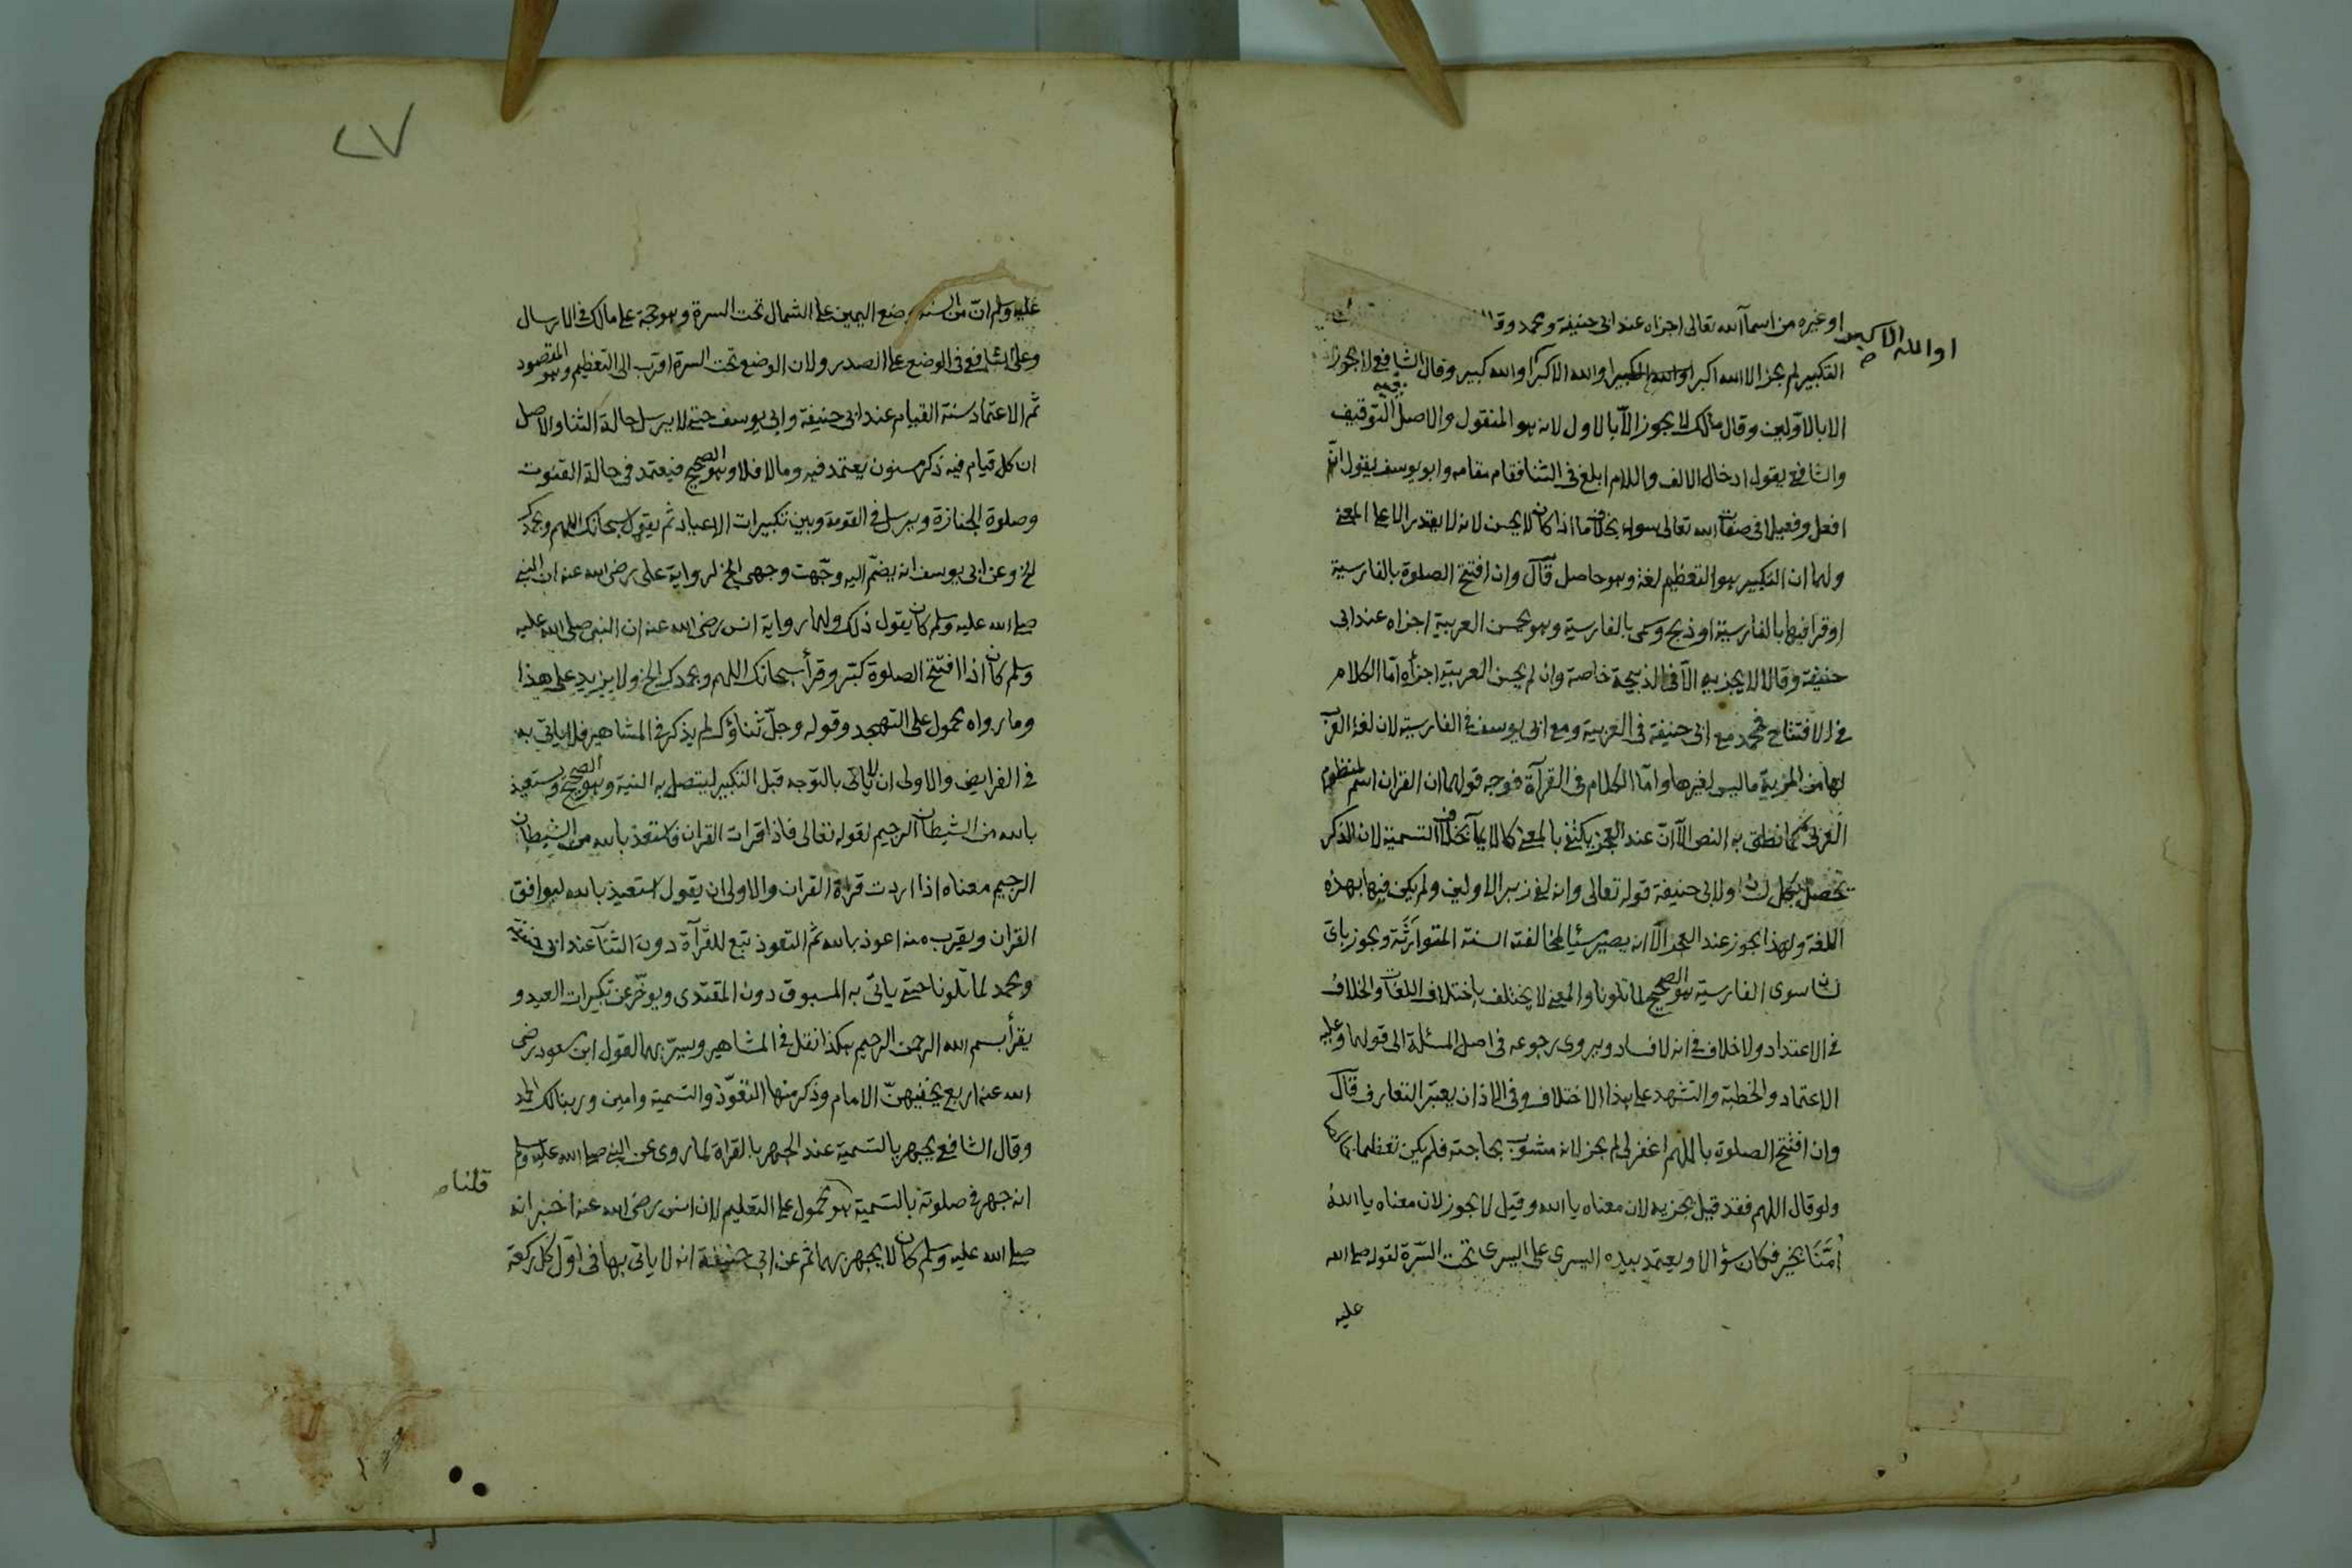 او غيره من اسماء الله تعالى اجزاه عند ابى حنيفة ومحمد وقا
او الله الاكبر
التكبير لم يجز الا الله اكبر او الله الاكبر او الله كبير وقال الشافعى لا يجوز
الا بالاولين وقال مالك لا يجوز الّا بالاول لانه هو المنقول والاصل فيه التوقيف
والشافعى يقول ادخال الالف واللام ابلغ فى الثنا فقام مقامه وابو يوسف يقول انّ
افعل وفعيلا فى صفات الله تعالى سواء بخلاف ما اذا كان لا يحسن لانه لا يقدر الا على المعنى
ولهما ان التكبير هو التعظيم لغة وهو حاصل قال وان افتتح الصلوة بالفارسية
او قرا فيها بالفارسية او ذبح وسمى بالفارسية وهو يحسن العربية اجزاه عند ابى
حنيفة وقالا لا يجزيه الّا فى الذبيحة خاصة وان لم يحسن العربية اجزاه امّا الكلام
فى الافتتاح فمحمد مع ابى حنيفة فى العربية ومع ابى يوسف فى الفارسية لان لغة العرب
لها من المزية ما ليس لغيرها وامّا الكلام فى القرآة فوجه قولهما ان القران اسم لمنظوم
العربى كما نطق به النص الّا انّ عند العجز يكتفى بالمعنى كالايمآ بخلاف التسمية لان الذكر
يحصل بكل لسان ولابى حنيفة قوله تعالى وانه لفى زبر الاولين ولم يكن فيها بهذه
اللغة ولهذا يجوز عند العجز الّا انه يصير مسيئا لمخالفته السنة المتوارثة ويجوز باى
لسان سوى الفارسية هو الصحيح لما تلونا والمعنى لا يختلف باختلاف اللغات والخلاف
فى الاعتداد ولا خلاف فى انه لا فساد ويروى رجوعه فى اصل المسئلة الى قولهما وعليه
الاعتماد والخطبة والتشهد على هذا الاختلاف وفى الاذان يعتبر التعارف قال
وان افتتح الصلوة باللهم اغفر لى لم يجز لانه مشوب بحاجته فلم يكن تعظيما
ولو قال اللهم فقد قيل يجزيه لان معناه يا الله وقيل لا يجوز لان معناه يا الله
اُمّنا بخير فكان سؤالا ويعتمد بيده اليسرى على اليسرى تحت السّرة لقوله صلى الله
عليه
٢٧
عليه وسلم انّ من السنة وضع اليمين على الشمال تحت السرة وهو حجة على مالك فى الارسال
وعلى الشافعى فى الوضع على الصدر ولان الوضع تحت السرة اقرب الى التعظيم وهو المقصود
ثم الاعتماد سنة القيام عند ابى حنيفة وابى يوسف حتى لا يرسل حالة الثنا والاصل
ان كل قيام فيه ذكر مسنون يعتمد فيه وما لا فلا وهو الصحيح فيعتمد فى حالة القنوت
وصلوة الجنازة ويرسل فى القومة وبين تكبيرات الاعياد ثم يقول سبحانك اللهم وبحمدك
الخ وعن ابى يوسف انه يضم اليه وجّهت وجهى الخ لرواية على رضى الله عنه ان النبى
صلى الله عليه وسلم كان يقول ذلك ولهما رواية انس رضى الله عنه ان النبى صلى الله عليه
وسلم كان اذا افتتح الصلوة كبّر وقرأ سبحانك اللهم وبحمدك الخ ولا يزيد على هذا
وما رواه محمول على التهجد وقوله وجلّ ثناؤك لم يذكر فى المشاهير فلا ياتى به
فى الفرايض والاولى ان لا ياتى بالتوجه قبل التكبير ليتصل به النية وهو الصحيح ويستعيذ
بالله من الشيطان الرجيم لقوله تعالى فاذا قرات القران فاستعذ بالله من الشيطان
الرجيم معناه اذا اردت قراة القران والاولى ان يقول استعيذ بالله ليوافق
القران ويقرب منه اعوذ بالله ثم التعوذ تبع للقرآة دون الثنآ عند ابى حنيفة
ومحمد لما تلونا حتى ياتى به المسبوق دون المقتدى ويوخّر عن تكبيرات العيد و
يقرأ بسم الله الرحمن الرحيم هكذا نقل فى المشاهير ويسرّ بهما لقول ابن مسعود رضى
الله عنه اربع يخفيهنّ الامام وذكر منها التعوّذ والتسمية وامين وربنا لك الحمد
وقال الشافعى يجهر بالتسمية عند الجهر بالقراة لما روى عن النبى صلى الله عليه وسلم
قلنا
انه جهر فى صلوته بالتسمية هو محمول على التعليم لان انس رضى الله عنه اخبر انه
صلى الله عليه وسلم كان لا يجهر بهما ثم عن ابى حنيفة انه لا ياتى بها فى اوّل كل ركعة